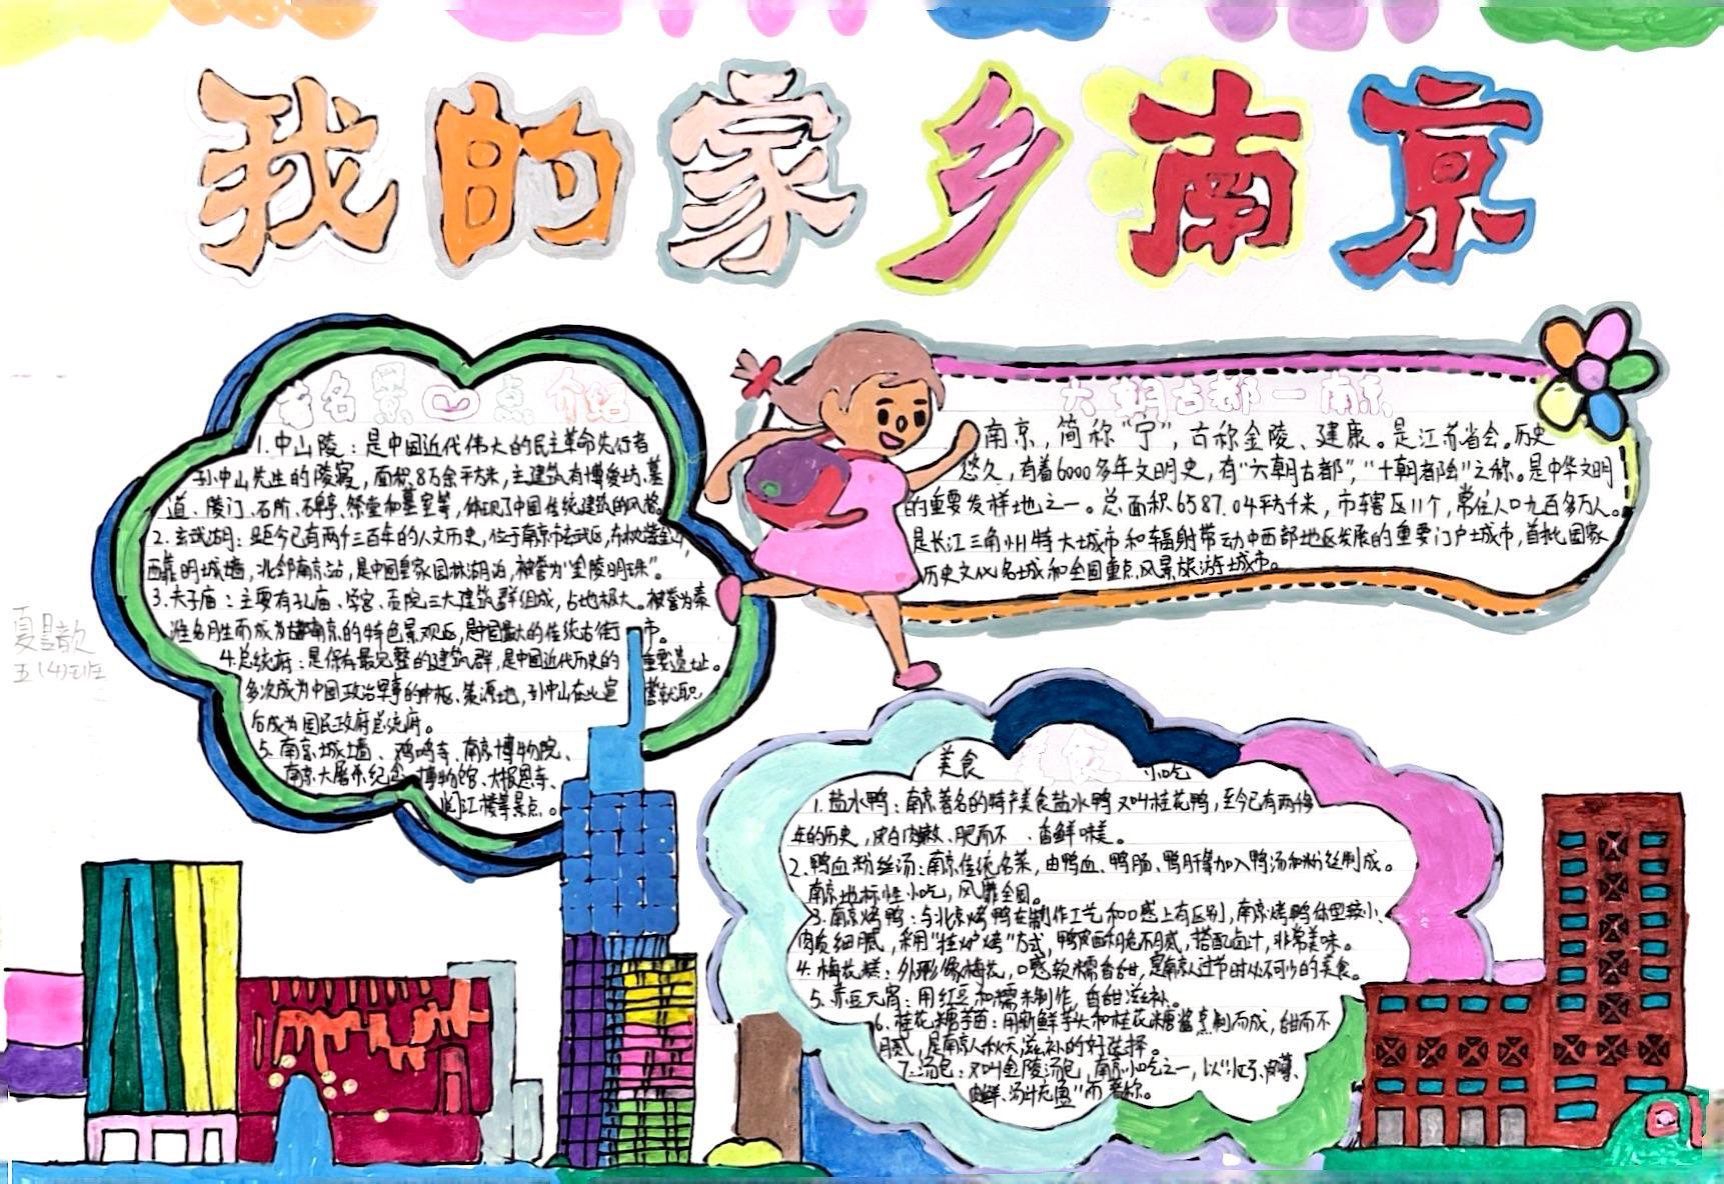 我的家乡南京
著名景点介绍
1.中山陵：是中国近代伟大的民主革命先行者
孙中山先生的陵寝，面积8万余平方米，主建筑有博爱坊、墓
道、陵门、石阶、碑亭、祭堂和墓室等，体现了中国传统建筑的风格。
2.玄武湖：距今已有两千三百年的人文历史，位于南京市玄武区，东枕紫金山，
西靠明城墙，北邻南京站，是中国皇家园林湖泊，被誉为"金陵明珠"。
3.夫子庙：主要有孔庙、学宫、贡院三大建筑群组成，占地极大。被誉为秦
淮名胜而成为南京的特色景观区，是中国最大的传统古街市。
4.总统府：是保存最完整的建筑群，是中国近代历史的重要遗址。
多次成为中国政治军事的中枢、策源地，孙中山在此宣誓就职，
后成为国民政府总统府。
5.南京城墙、鸡鸣寺、南京博物院、
南京大屠杀纪念 博物馆、大报恩寺、
阅江楼等景点。
六朝古都一南京
南京，简称"宁"，古称金陵、建康。是江苏省会。历史
悠久，有着6000多年文明史，有"六朝古都"，"十朝都会"之称。是中华文明
的重要发祥地之一。总面积6587.04平方千米，市辖区11个，常住人口九百多万人。
是长江三角州特大城市和辐射带动中西部地区发展的重要门户城市，首批国家
历史文化名城和全国重点风景旅游城市。
美食 美食 小吃
1.盐水鸭：南京著名的特产美食盐水鸭又叫桂花鸭，至今已有两千
年的历史，皮白肉嫩、肥而不 、香鲜味美。
2.鸭血粉丝汤：南京传统名菜，由鸭血、鸭肠、鸭肝等加入鸭汤和粉丝制成。
南京地标性小吃，风靡全国。
3.南京烤鸭：与北京烤鸭在制作工艺和口感上有区别，南京烤鸭体型较小、
肉质细腻，采用"挂炉烤"方式，鸭皮酥脆不腻，搭配卤汁，非常美味。
4.梅花糕：外形像梅花，口感软糯香甜，是南京人过节时必不可少的美食。
5.赤豆元宵：用红豆和糯米制作，香甜滋补。
6.桂花糖芋苗：用新鲜芋头和桂花糖酱熬制而成，甜而不
腻，是南京人秋天滋补的好选择。
7.汤包：又叫金陵汤包，南京小吃之一，以"小巧、皮薄、
肉鲜、汤汁充盈"而著称。
五(4)班